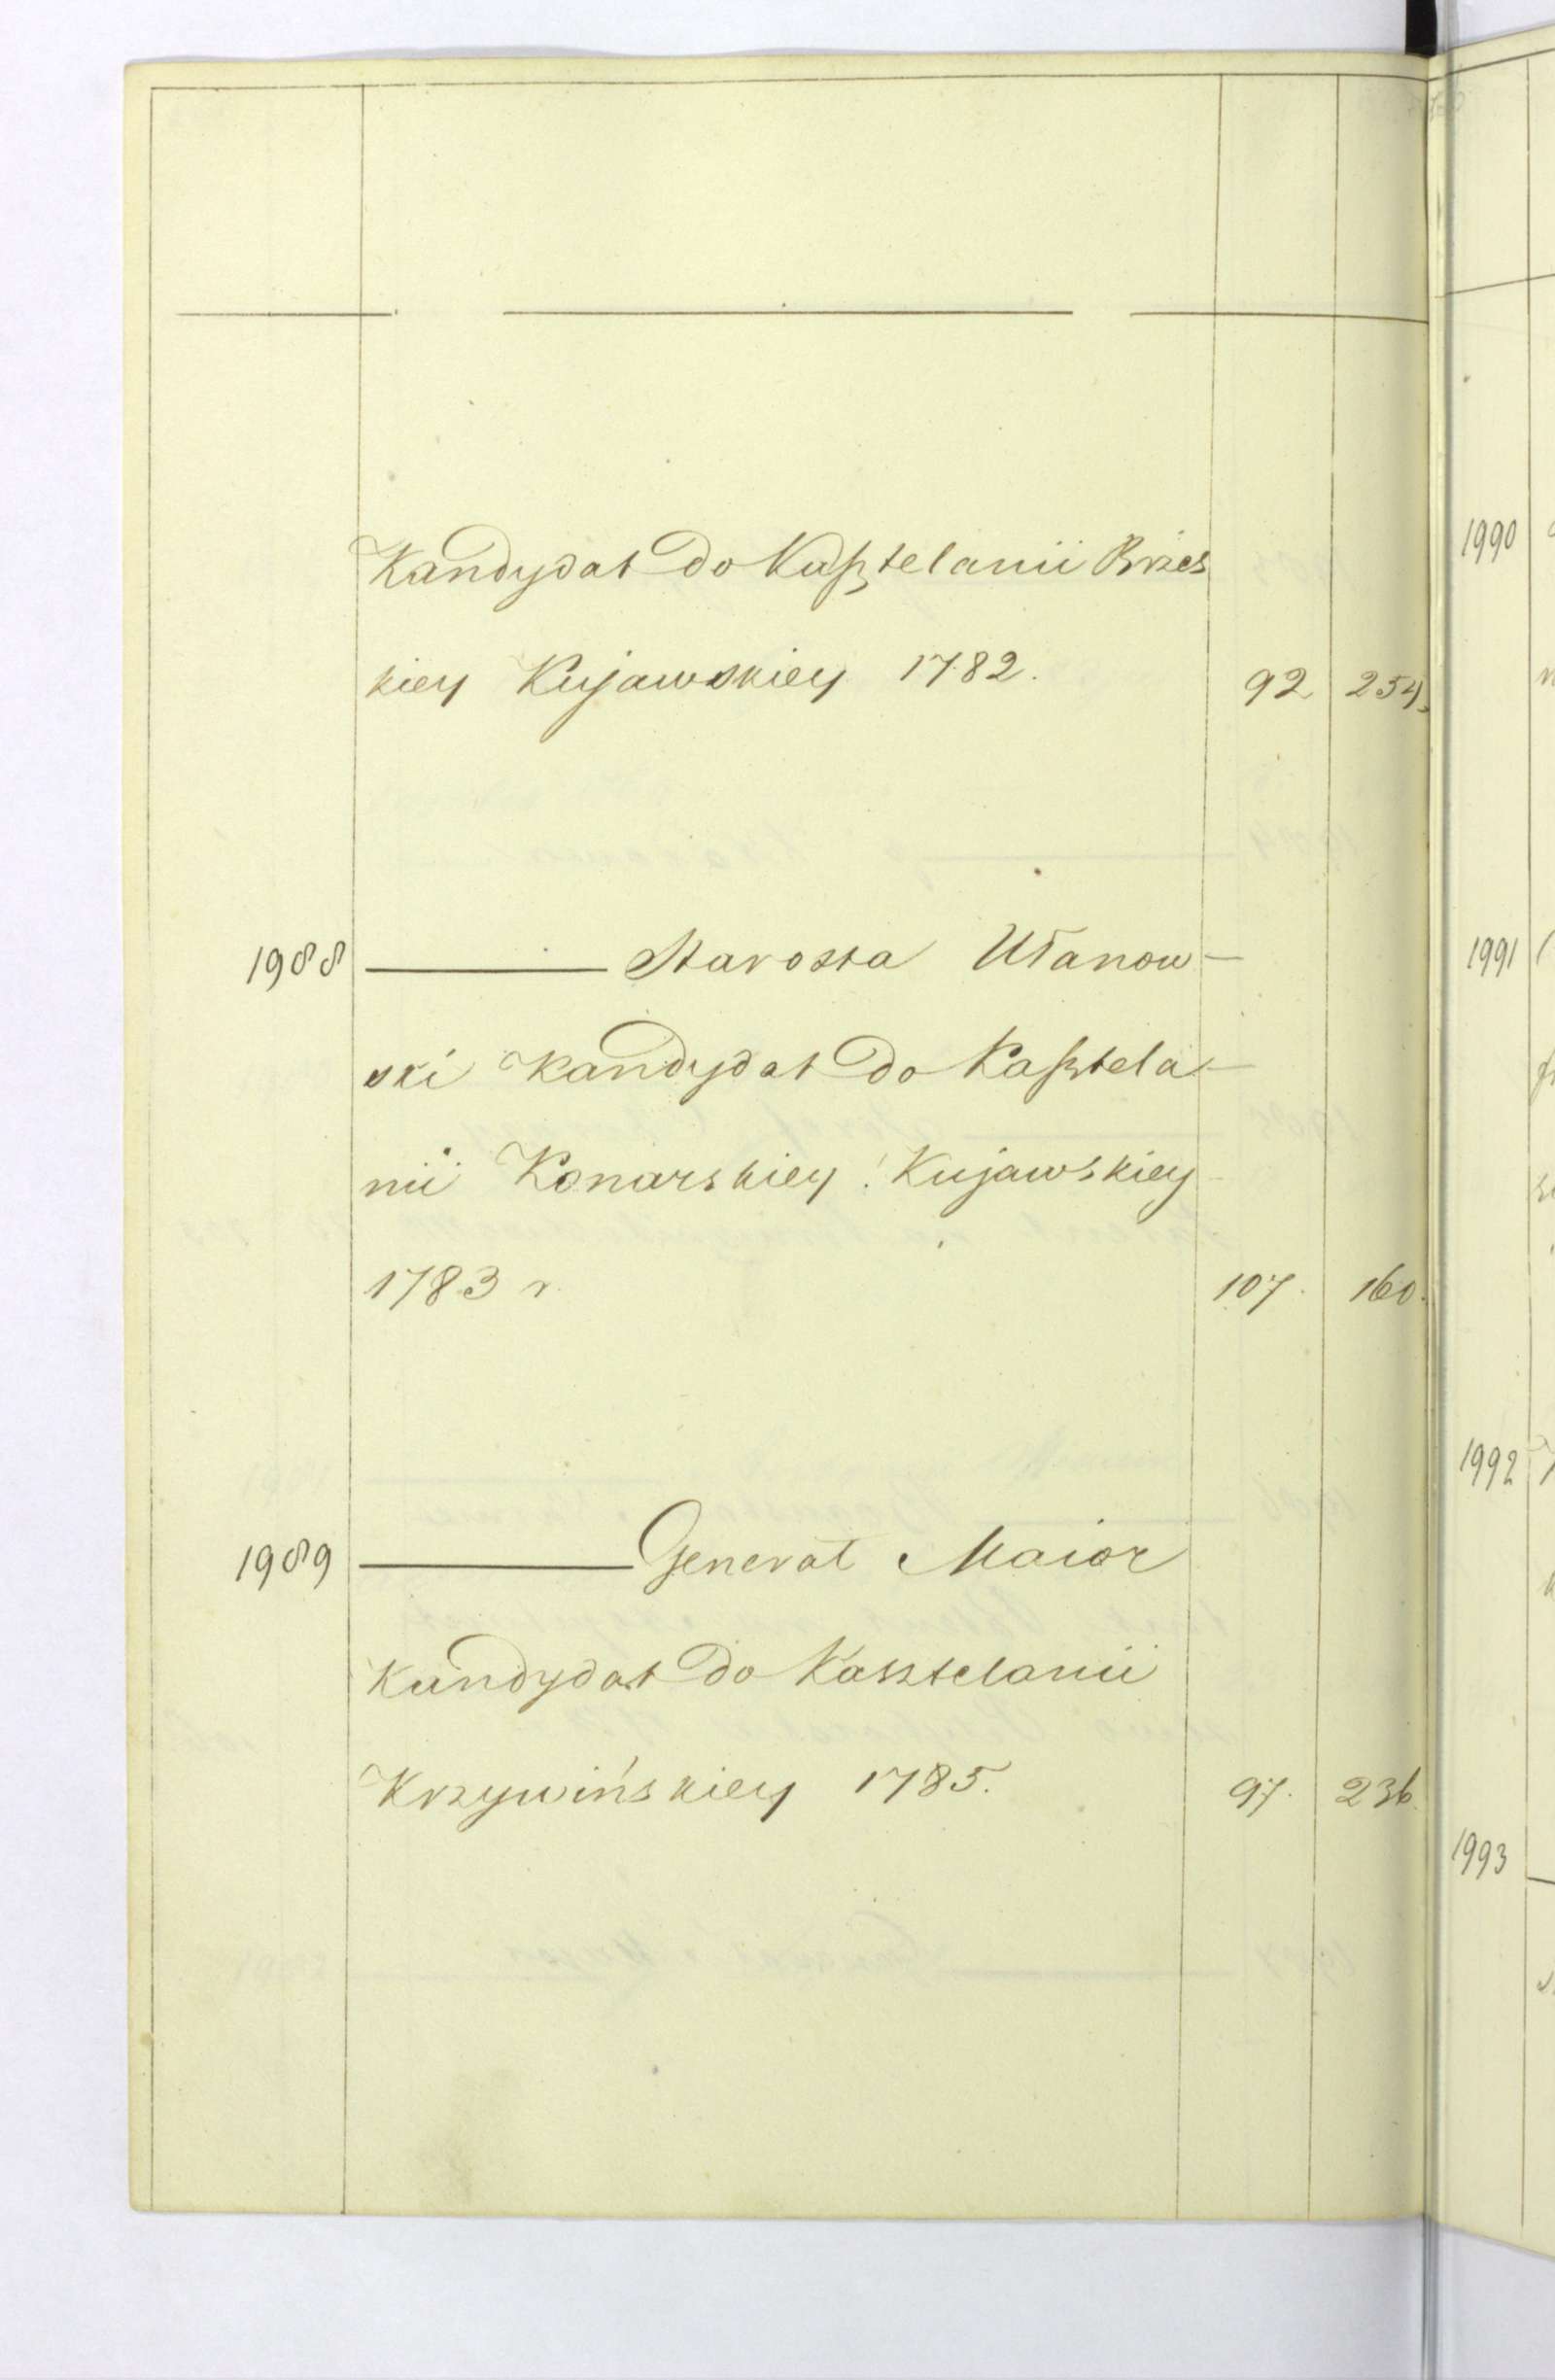 Kandydat do Kasztelanii Brzes
kiey Kujawskiey 1782. 92 254
1988 Starosta Ułanow-
ski Kandydat do Kasztela-
nii Konarskiey Kujawskiey
1783 r. 107. 160.
1989 Generał Maior
Kandydat do Kasztelanii
Krzywińskiey 1785. 97. 236.
1990
1991
1992
1993